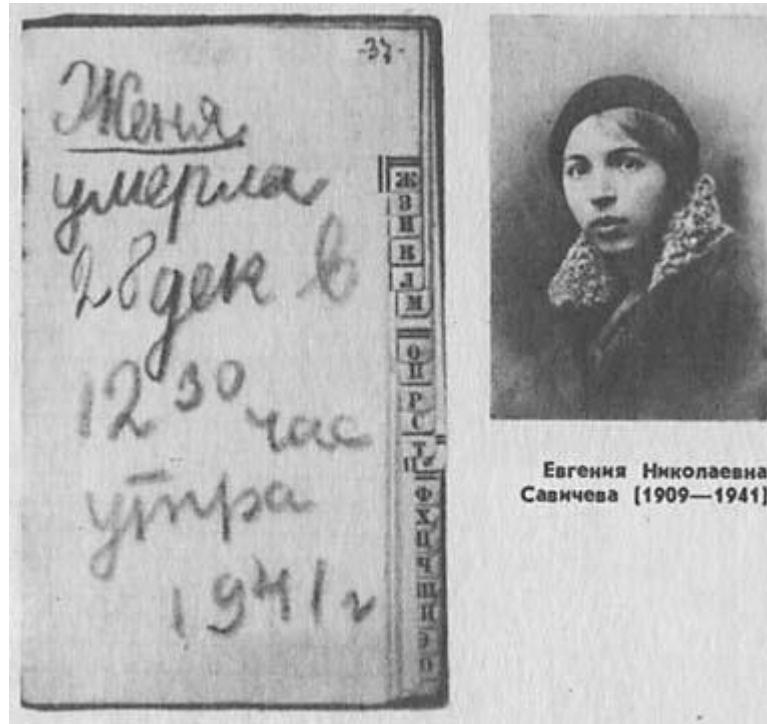 -37-
Женя
умерла
28 дек в
12 30 час
утра
1941 г
Ж
З
И
К
Л
М
О
П
Р
С
Т
Ф
Х
Ц
Ч
Ш
Щ
Э
Евгения Николаевна
Савичева (1909—1941)